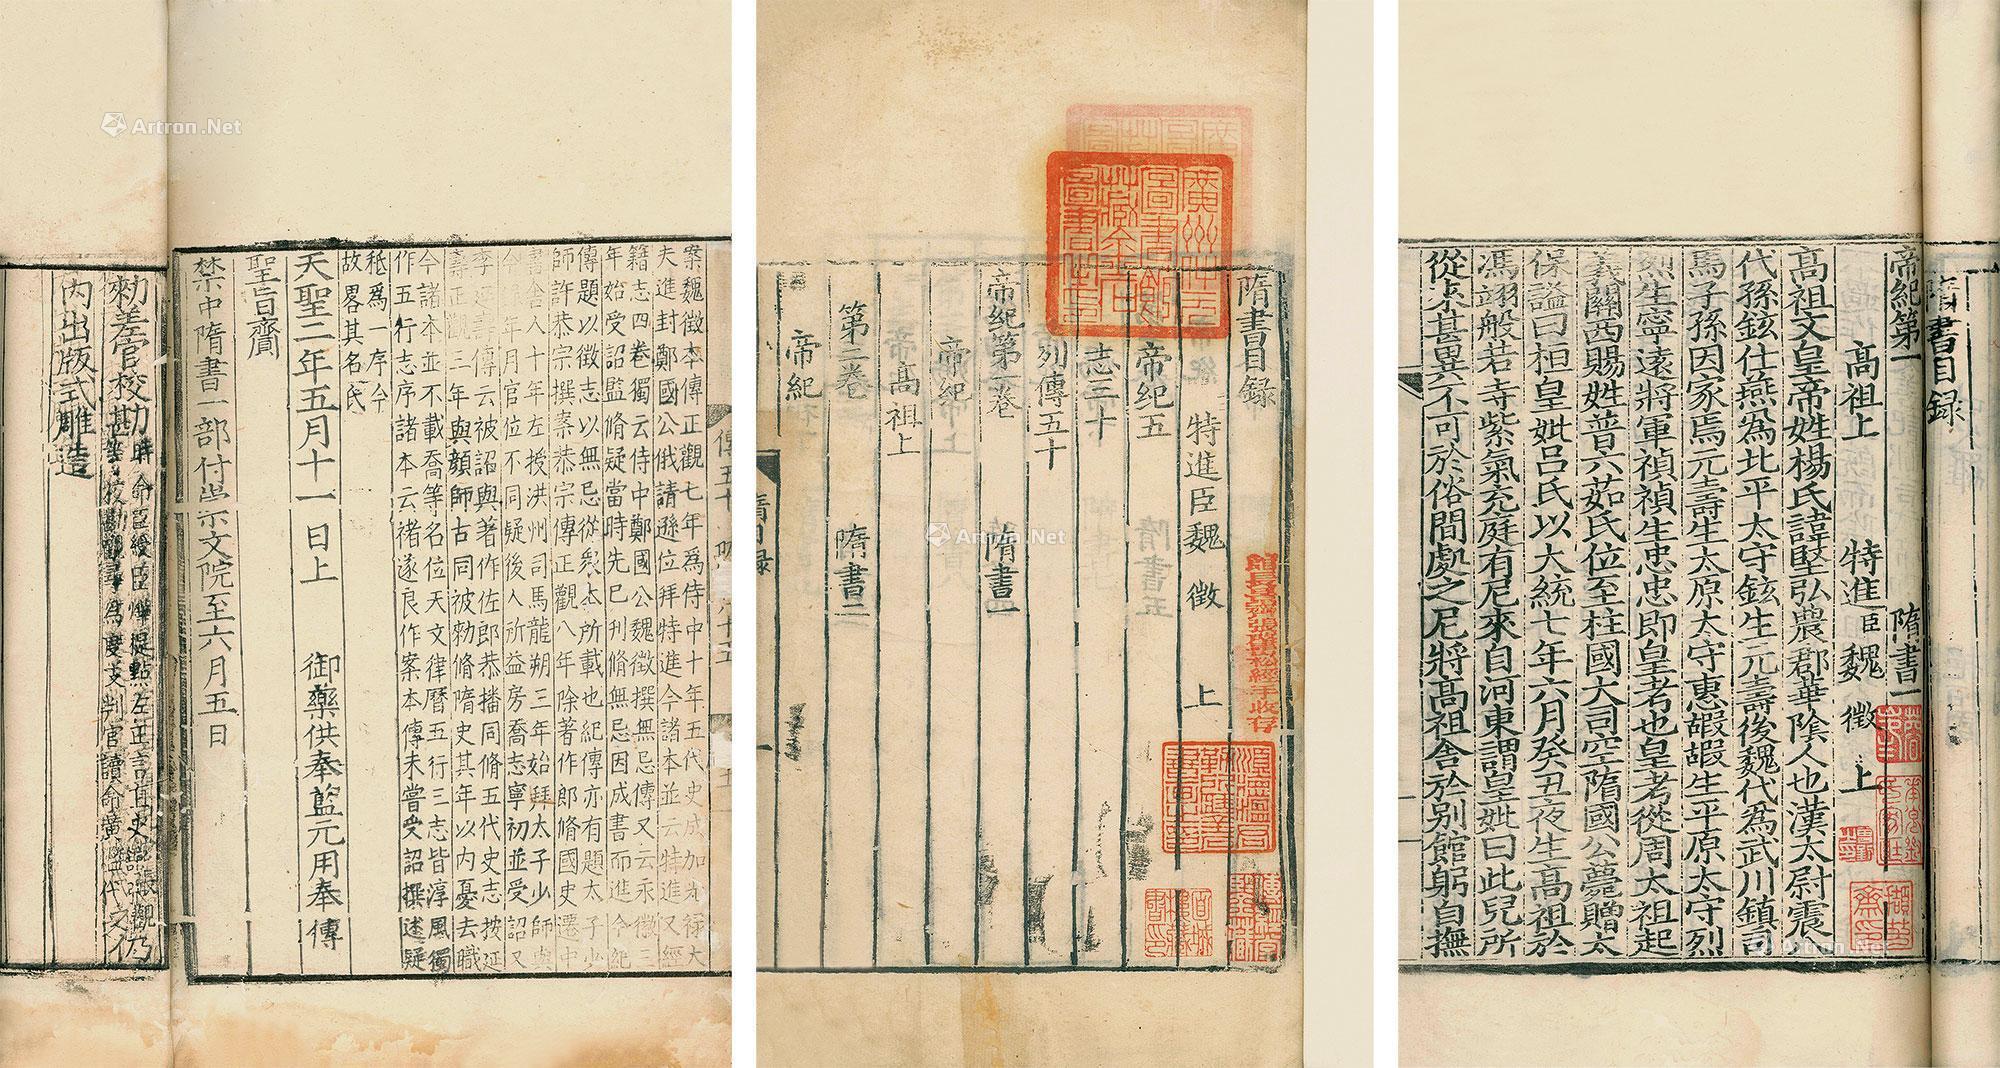 案魏徵本傳正觀七年爲侍中十年五代史成加光禄大
夫進封鄭國公俄請遜位拜特進今諸本並云特進又經
籍志四卷獨云侍中鄭國公魏徵撰無忌傳又云永徽三
年始受詔監脩疑當時先已刊脩無忌因成書而進今紀
傳題以徵志以無忌從衆本所載也紀傳亦有題太子少
師許恭宗撰案恭宗傳正觀八年除著作郎脩國史遷中
書舍人十年左授洪州司馬龍朔三年始拜太子少師與
今年月官位不同疑後人所益房喬志寧初並受詔又
李延壽傳云被詔與著作佐郎恭播同脩五代史志按延
壽正觀三年與顔師古同被勑脩隋史其年以内憂去職
今諸本並不載喬等名位天文律曆五行三志皆淳風獨
作五行志序諸本云禇遂良作案本傳未嘗受詔撰述疑
秪爲一序今
故畧其名氏
天聖二年五月十一日上 御藥供奉藍元用奉傳
聖旨齎
禁中隋書一部付崇文院至六月五日
勑差官校勘 時命臣綬臣燁提點左正言直史館張觀
等校勘觀尋爲度支判官續命黃鑑代之 仍
内出版式雕造
隋書目録
特進臣魏 徵 上
帝紀五
志三十
列傳五十
帝紀第一卷 隋書一
帝紀
高祖上
第二卷 隋書二
帝紀
廣州市元圖書館藏金石圖書之印
隋書目録
帝紀第一 隋書一
高祖上 特進臣魏 徵 上
高祖文皇帝姓楊氏諱堅弘農郡華陰人也漢太尉震
代孫鉉仕燕爲北平太守鉉生元壽後魏代爲武川鎮司
馬子孫因家焉元壽生太原太守惠嘏嘏生平原太守烈
烈生寧遠將軍禎禎生忠忠即皇考也皇考從周太祖起
義關西賜姓普六茹氏位至柱國大司空隋國公薨贈太
保謚曰桓皇妣吕氏以大統七年六月癸丑夜生高祖於
馮翊般若寺紫氣充庭有尼來自河東謂皇妣曰此兒所
從來甚異不可於俗間處之尼將高祖舍於别館躬自撫
Artron.Net
Artron.Net
Artron.Net